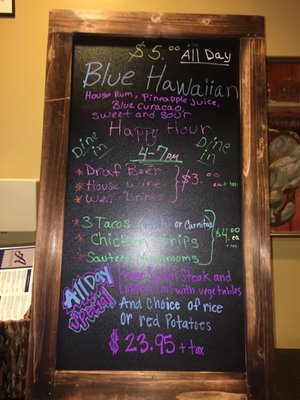 $5.00 All Day
Blue Hawaiian
House Rum, Pineapple Juice,
Blue Curacao
Sweet and Sour
Happy Hour
Dine in
Dine in
4-7pm
* Draf Beer
* House Wine
* Well Drinks
$3.00 ea + tax
* 3 Tacos or Carnitas
* Chicken Strips
* Sauteed Mushrooms
$4.00 ea + tax
All Day Special
Steak and
Lobster Tail with vegetables
And Choice of rice
or red Potatoes
$23.95 + tax